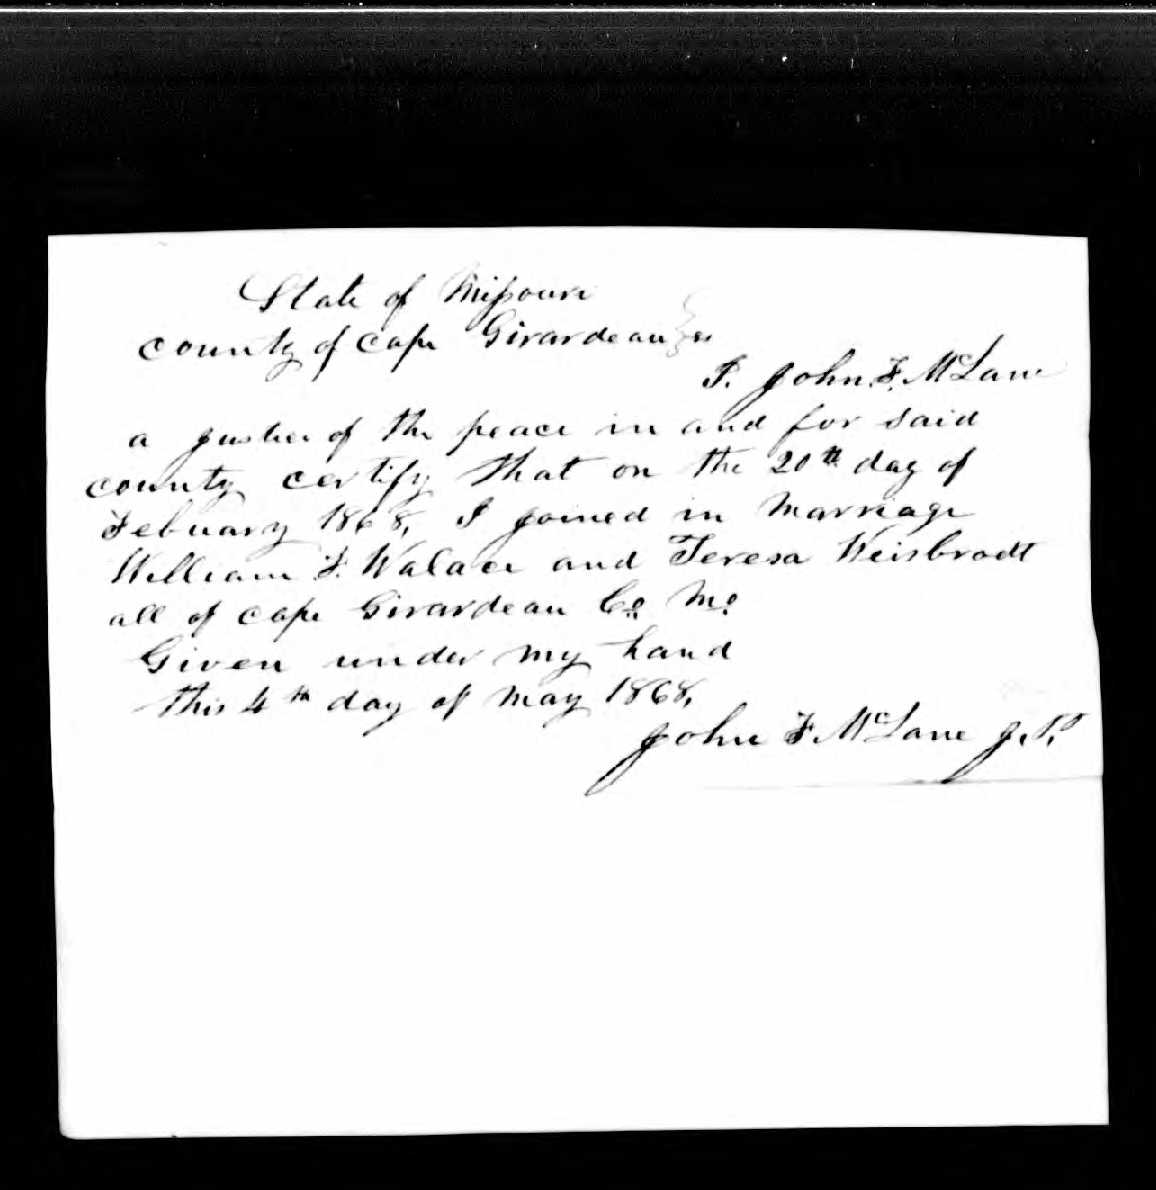 State of Missouri
county of Cape Girardeau } ss
I. John F. McLane
a justice of the peace in and for said
county certify that on the 20th day of
Febuary 1868, I joined in marriage
William F. Walace and Teresa Weisbrodt
all of Cape Girardeau Co. Mo.
Given under my hand
this 4th day of May 1868,
John F McLane J.P.